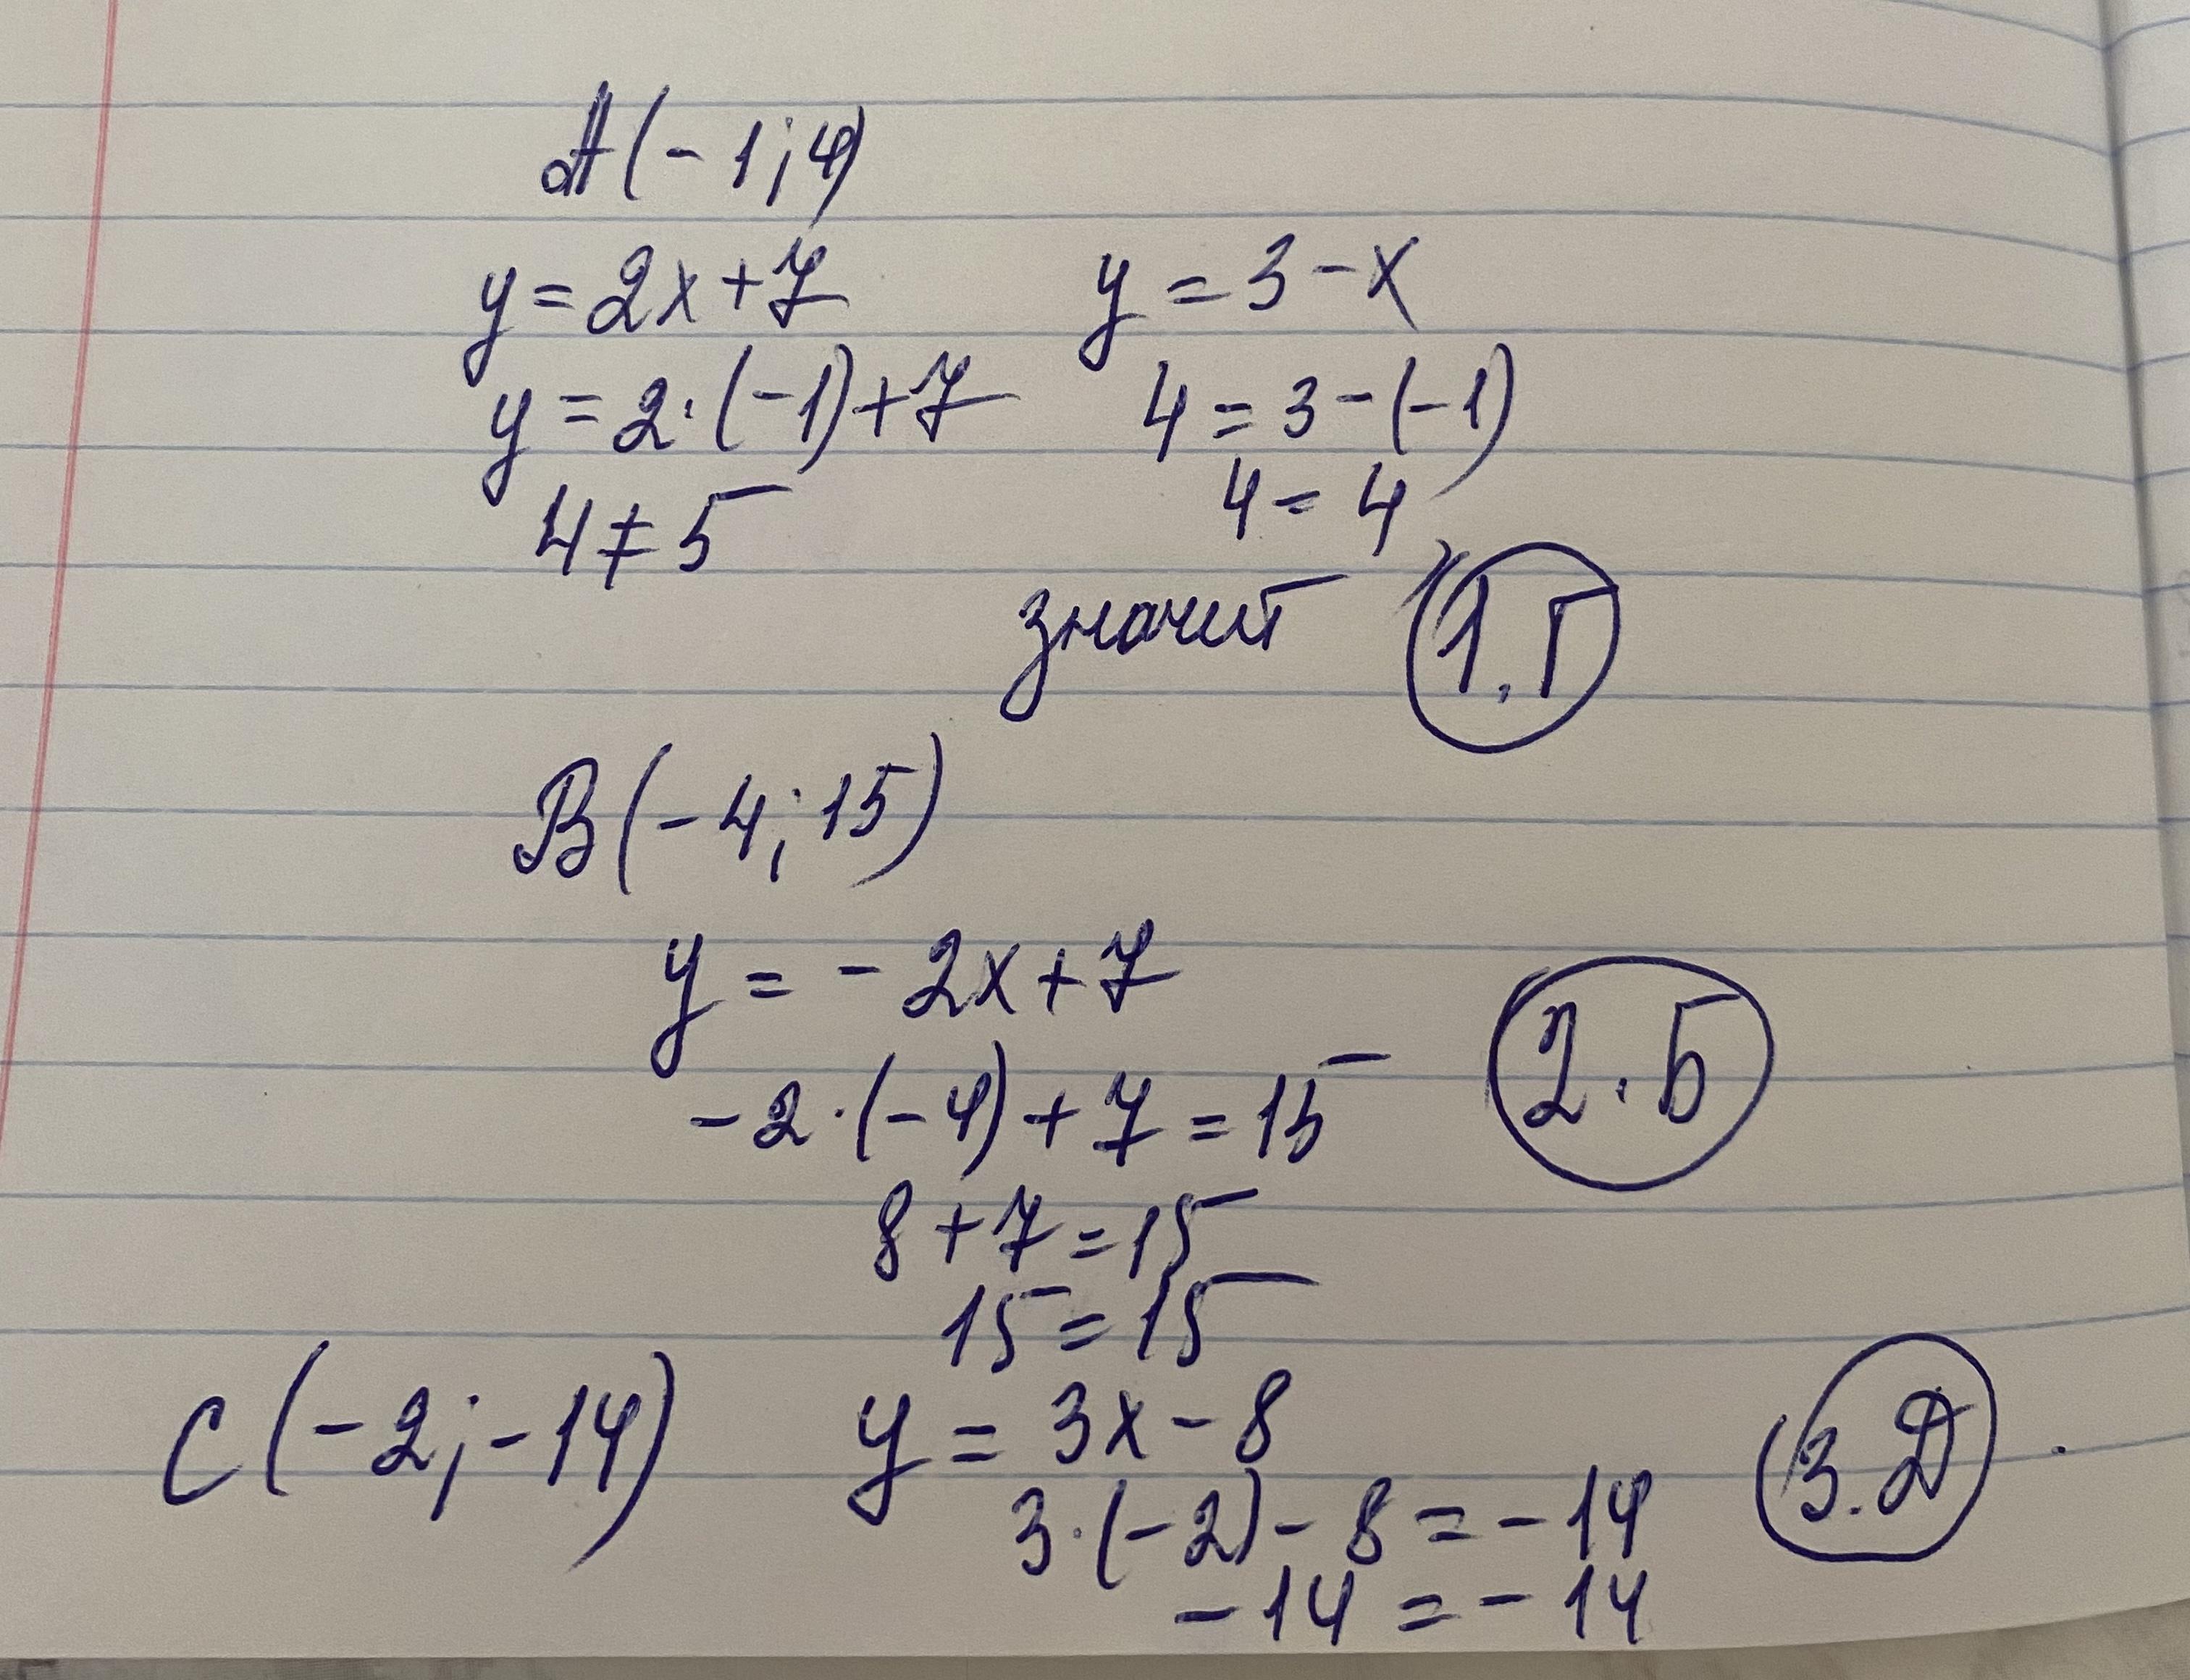 A(-1;4)
y=2x+7 y=3-x
y=2·(-1)+7 4=3-(-1)
4≠5 4=4
значит 1.Г
B(-4;15)
y=-2x+7
2.Б
-2·(-4)+7=15
8+7=15
15=15
C(-2;-14) y=3x-8 3.Д.
3·(-2)-8=-14
-14=-14